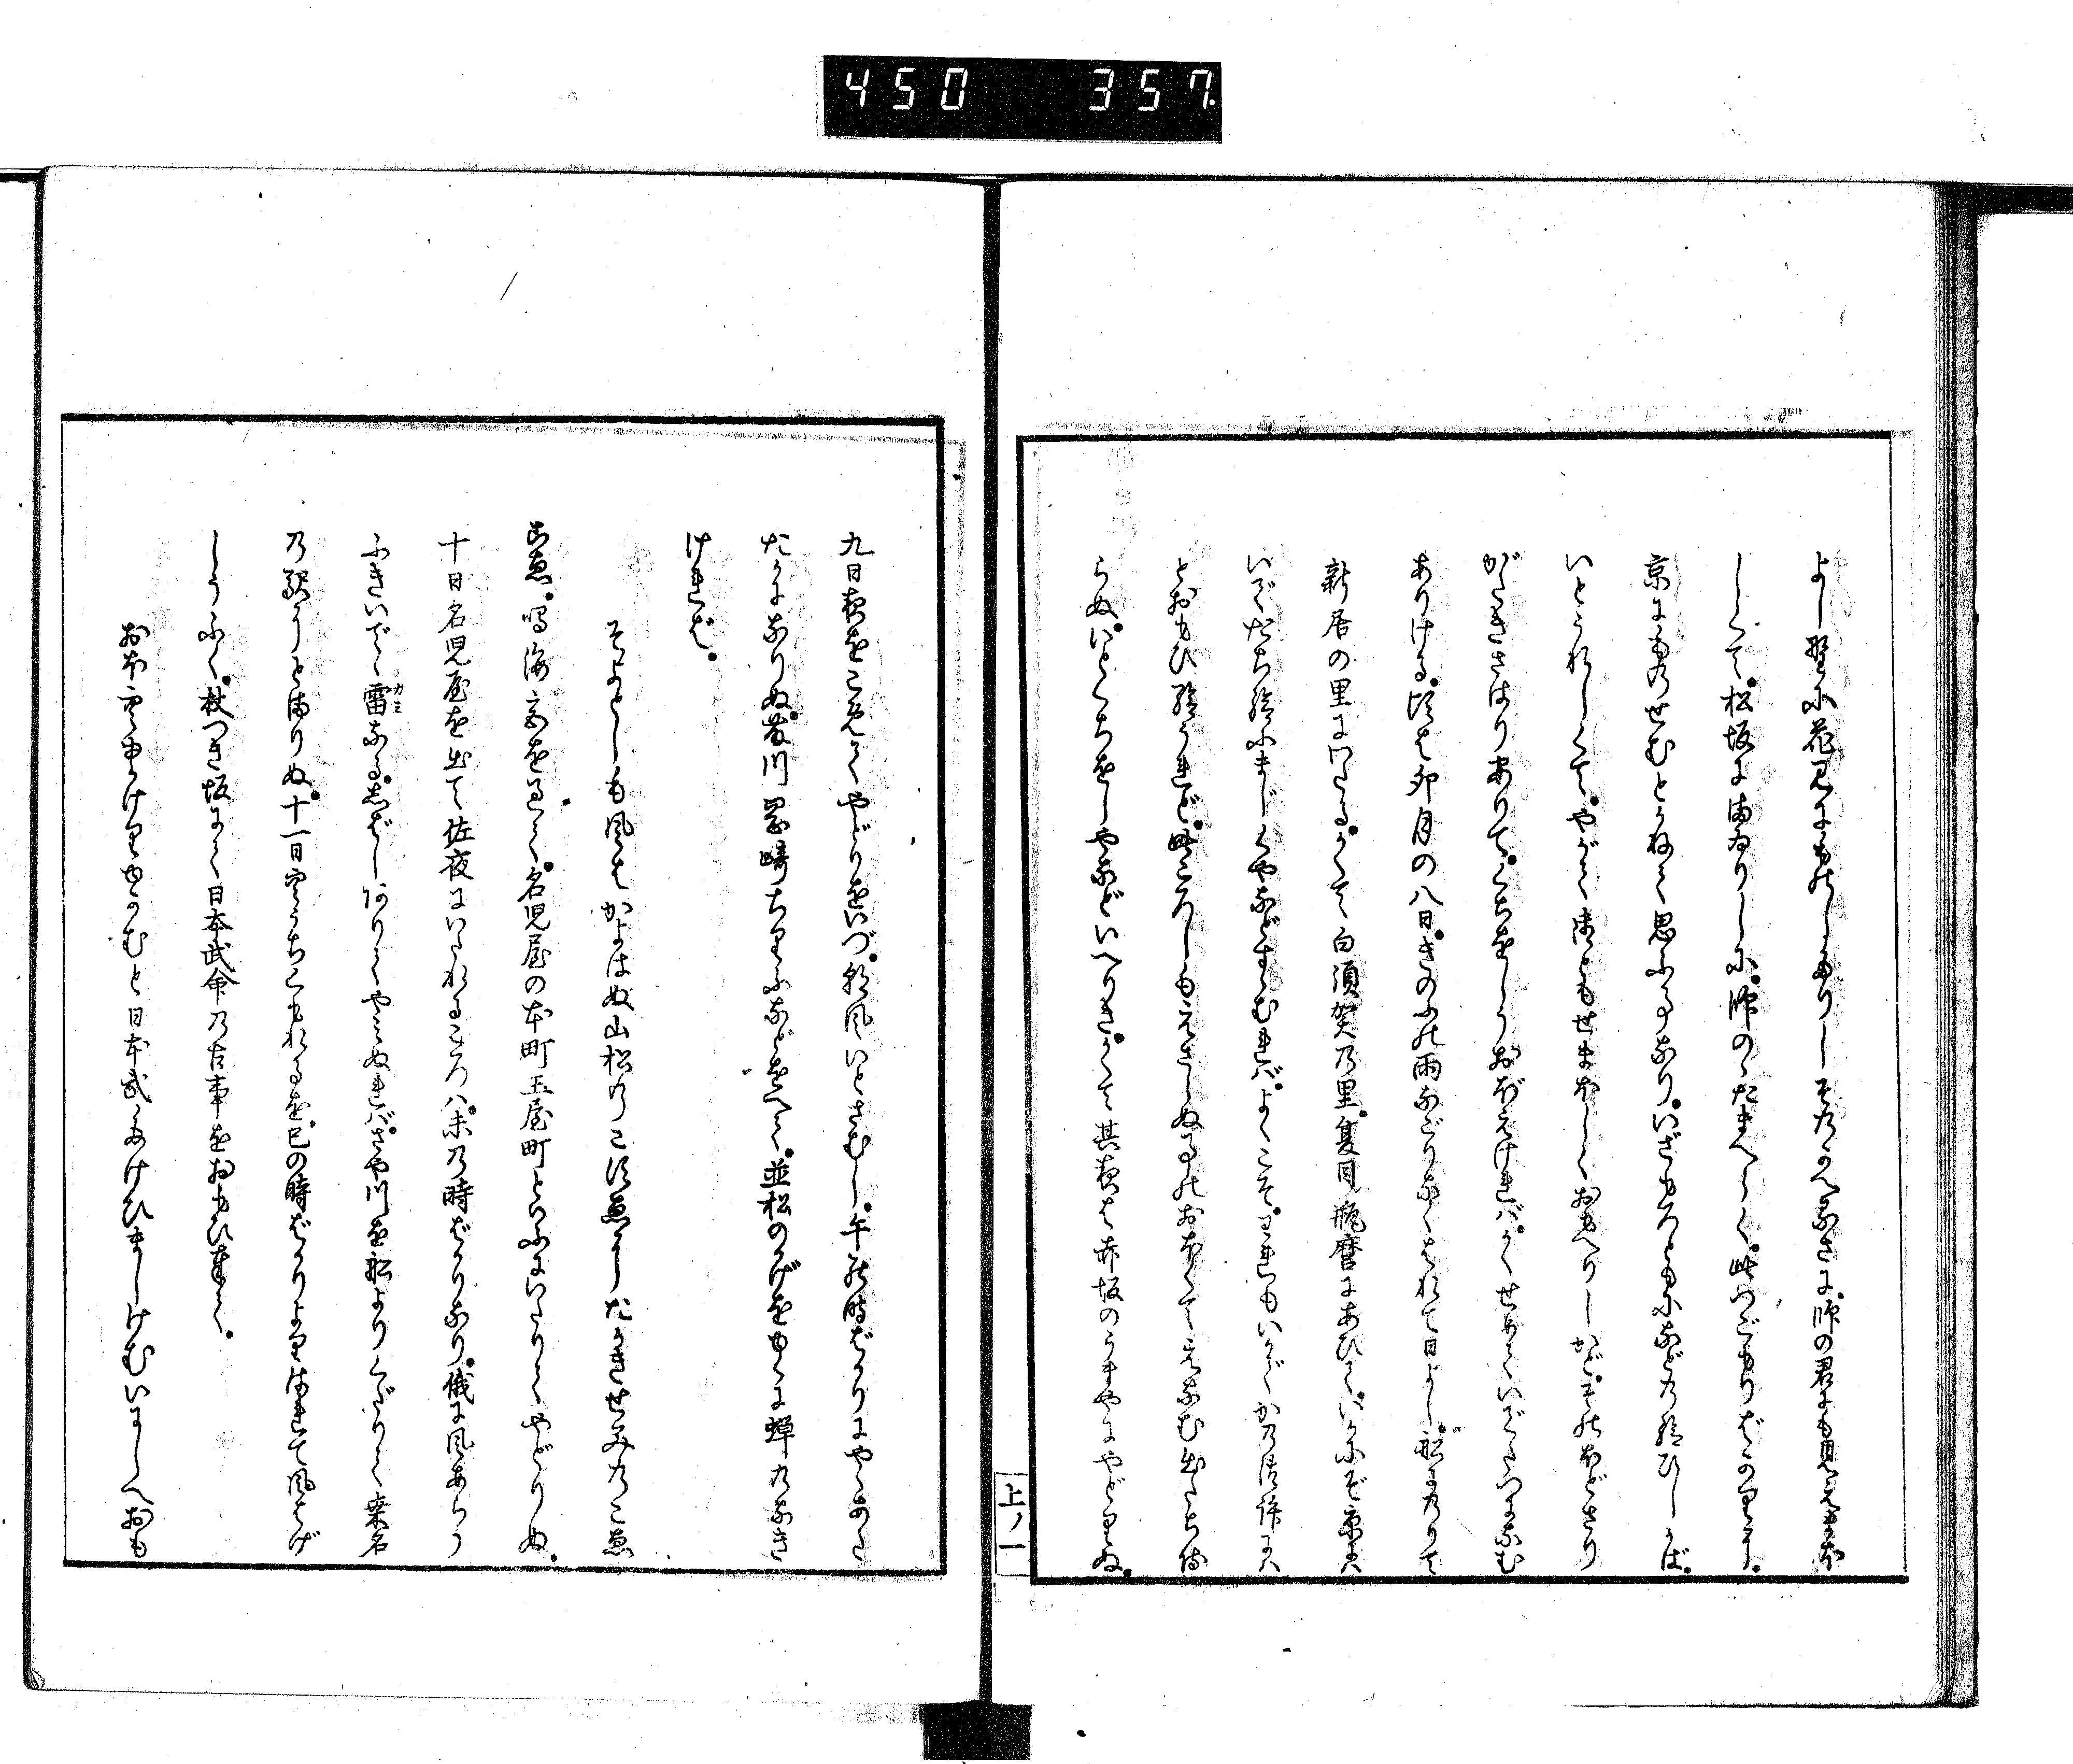 450 357
よし野に花見にものしたりしそのかへるさに師の君にも見えまほ
しくて松坂にまゐりしに師のゝたまへらく此つごもりばかりに
京にものせむとかねて思ふ事なりいざもろともになどの給ひしかば
いとうれしくてやがて御ともせまほしくおもへりしかどそのほどさり
がたきさはりありてくちをしうおぼえけれバかくせめていでたつになむ
ありける頃は卯月の八日きのふの雨なごりなくはれて日よし船にのりて
新居の里にわたるかくて白須賀の里夏目甕麿にあひていかにぞ京へハ
いでたち給ふまじくやなどすゝむれバよくこそわれもいかでかの
とおもひ給うれど此ころしもえさらぬ事のおほくてえなむ出たち侍
らぬいとくちをしやなどいへりきかくて其夜は赤坂のうまやにやどりぬ
上ノ一
九日夜をこめてやどりをいづ朝風いとさむし午の時ばかりにやゝあたゝ
たかになりぬ藤川岡崎ちりふなどをへて並松のかげをゆくに蝉のなき
ければ
そよとしも風はかよはぬ山松のこずゑにたかきせみのこゑ
鳴海宮を過て名児屋の本町玉屋町といふにいたりてやどりぬ
十日名児屋を出て佐夜にいたれるころハ未の時ばかりなり俄に風あらう
ふきいでゝ雷なるしばしありてやみぬれバさや川を船よりくだりて桑名
カミ
の駅にとまりぬ十一日空うちくもれるを巳の時ばかりよりはれて風はげ
しうふく杖つき坂にて日本武命の古事をおもひ出て
おほみゆけりむと日本武たけひましけむいにしへおも